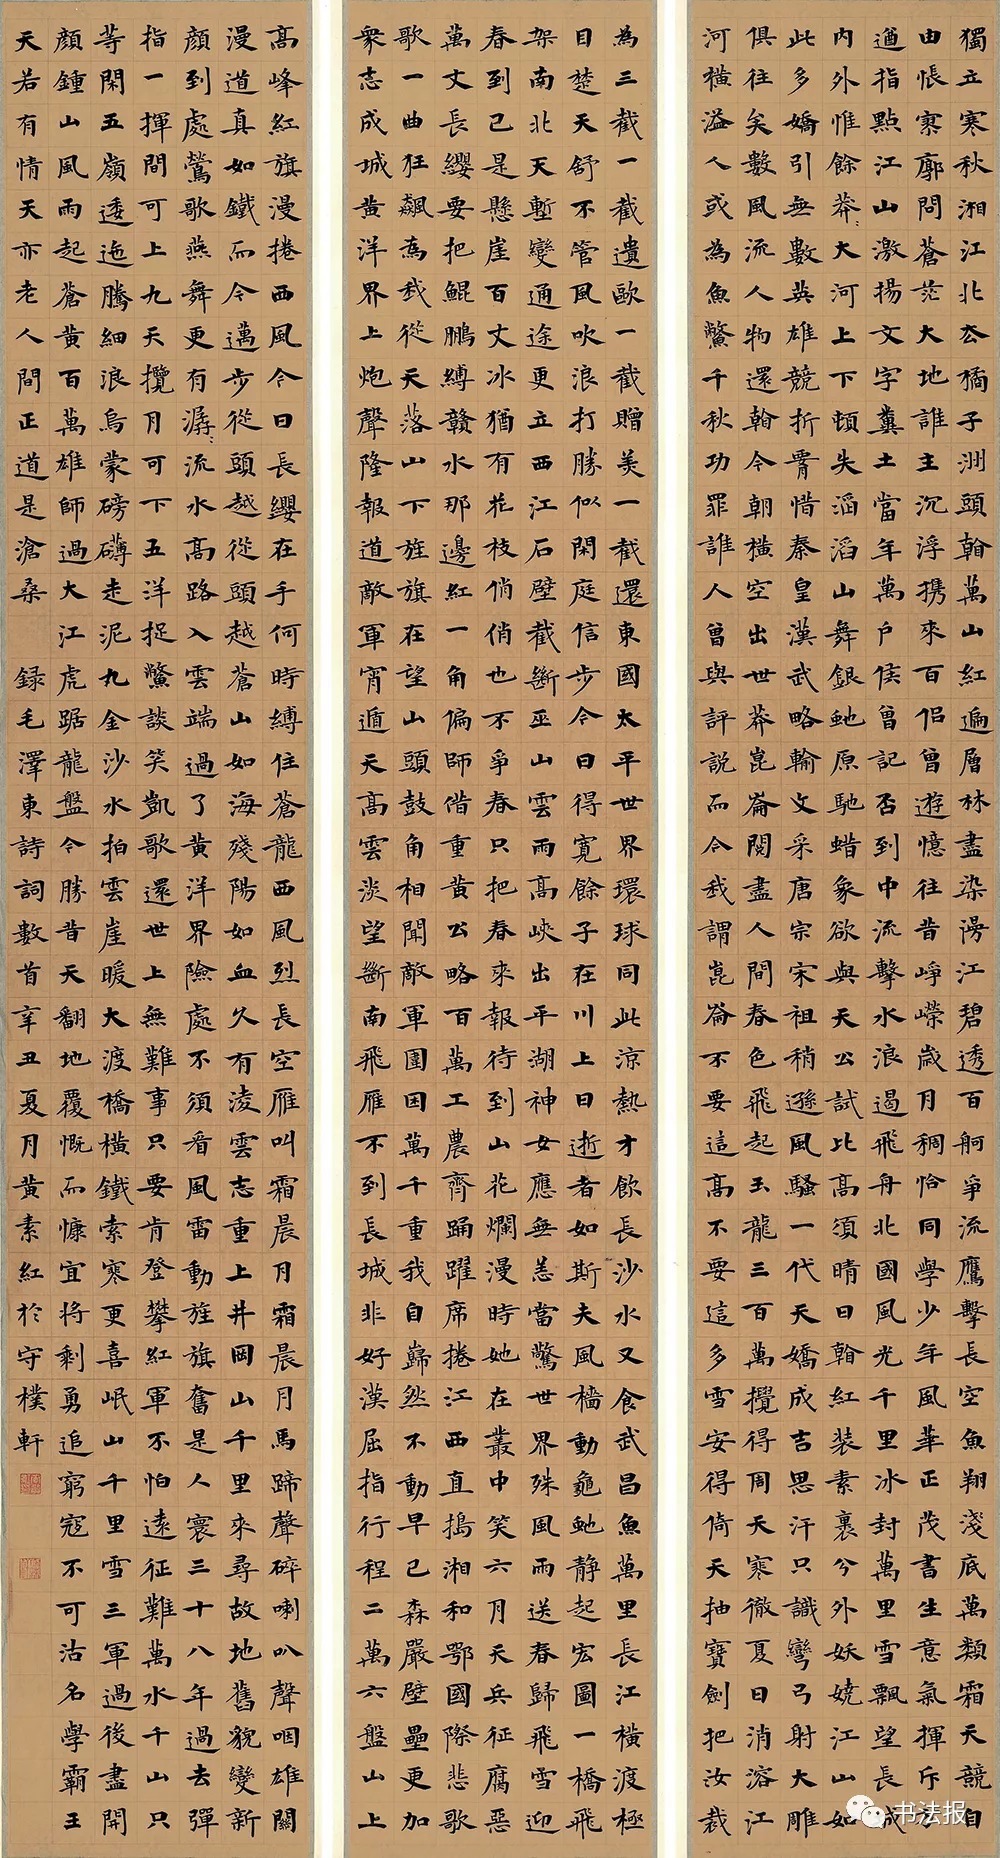 獨立寒秋湘江北去橘子洲頭翰萬山紅遍層林盡染漫江碧透百舸爭流鷹擊長空魚翔淺底萬類霜天競自
由悵寥廓問蒼茫大地誰主沉浮携來百侶曾遊憶往昔崢嶸歲月稠恰同學少年風華正茂書生意氣揮斥方
遒指點江山激揚文字糞土當年萬戶侯曾記否到中流擊水浪遏飛舟北國風光千里冰封萬里雪飄望長城
內外惟餘莽莽大河上下頓失滔滔山舞銀蛇原馳蜡象欲與天公試比高須晴日翰紅装素裹兮外妖嬈江山如
此多嬌引無數英雄競折腰惜秦皇漢武略輸文采唐宗宋祖稍遜風騷一代天嬌成吉思汗只識彎弓射大雕
俱往矣數風流人物還翰今朝橫空出世莽崑崙閱盡人間春色飛起玉龍三百萬攪得周天寒徹夏日消溶江
河橫溢人或為魚鱉千秋功罪誰人曾與評說而今我謂崑崙不要這高不要這多雪安得倚天抽寶劍把汝裁
為三截一截遺歐一截贈美一截還東國太平世界環球同此涼熱才飲長沙水又食武昌魚萬里長江橫渡極
目楚天舒不管風吹浪打勝似閑庭信步今日得寬餘子在川上曰逝者如斯夫風檣動龜蛇静起宏圖一橋飛
架南北天塹變通途更立西江石壁截斷巫山雲雨高峽出平湖神女應無恙當驚世界殊風雨送春歸飛雪迎
春到已是懸崖百丈冰猶有花枝俏俏也不爭春只把春來報待到山花爛漫時她在叢中笑六月天兵征腐惡
萬丈長纓要把鯤鵬縛贛水那邊紅一角偏師借重黄公略百萬工農齊踊躍席捲江西直搗湘和鄂國際悲歌
歌一曲狂飆為我從天落山下旌旗在望山頭鼓角相聞敵軍圍困萬千重我自巋然不動早已森嚴壁壘更加
衆志成城黄洋界上炮聲隆報道敵軍宵遁天高雲淡望斷南飛雁不到長城非好漢屈指行程二萬六盤山上
高峰紅旗漫捲西風今日長纓在手何時縛住蒼龍西風烈長空雁叫霜晨月霜晨月馬蹄聲碎喇叭聲咽雄關
漫道真如鐵而今邁步從頭越從頭越蒼山如海殘陽如血久有凌雲志重上井岡山千里來尋故地舊貌變新
顏到處鶯歌燕舞更有潺潺流水高路入雲端過了黄洋界險處不須看風雷動旌旗奮是人寰三十八年過去彈
指一揮間可上九天攬月可下五洋捉鱉談笑凱歌還世上無難事只要肯登攀紅軍不怕遠征難萬水千山只
等閑五嶺逶迤騰細浪烏蒙磅礴走泥丸金沙水拍雲崖暖大渡橋橫鐵索寒更喜岷山千里雪三軍過後盡開
顏鍾山風雨起蒼黄百萬雄師過大江虎踞龍盤今勝昔天翻地覆慨而慷宜將剩勇追窮寇不可沽名學霸王
天若有情天亦老人間正道是滄桑 録毛澤東詩詞數首辛丑夏月黄素紅於守樸軒
书法报